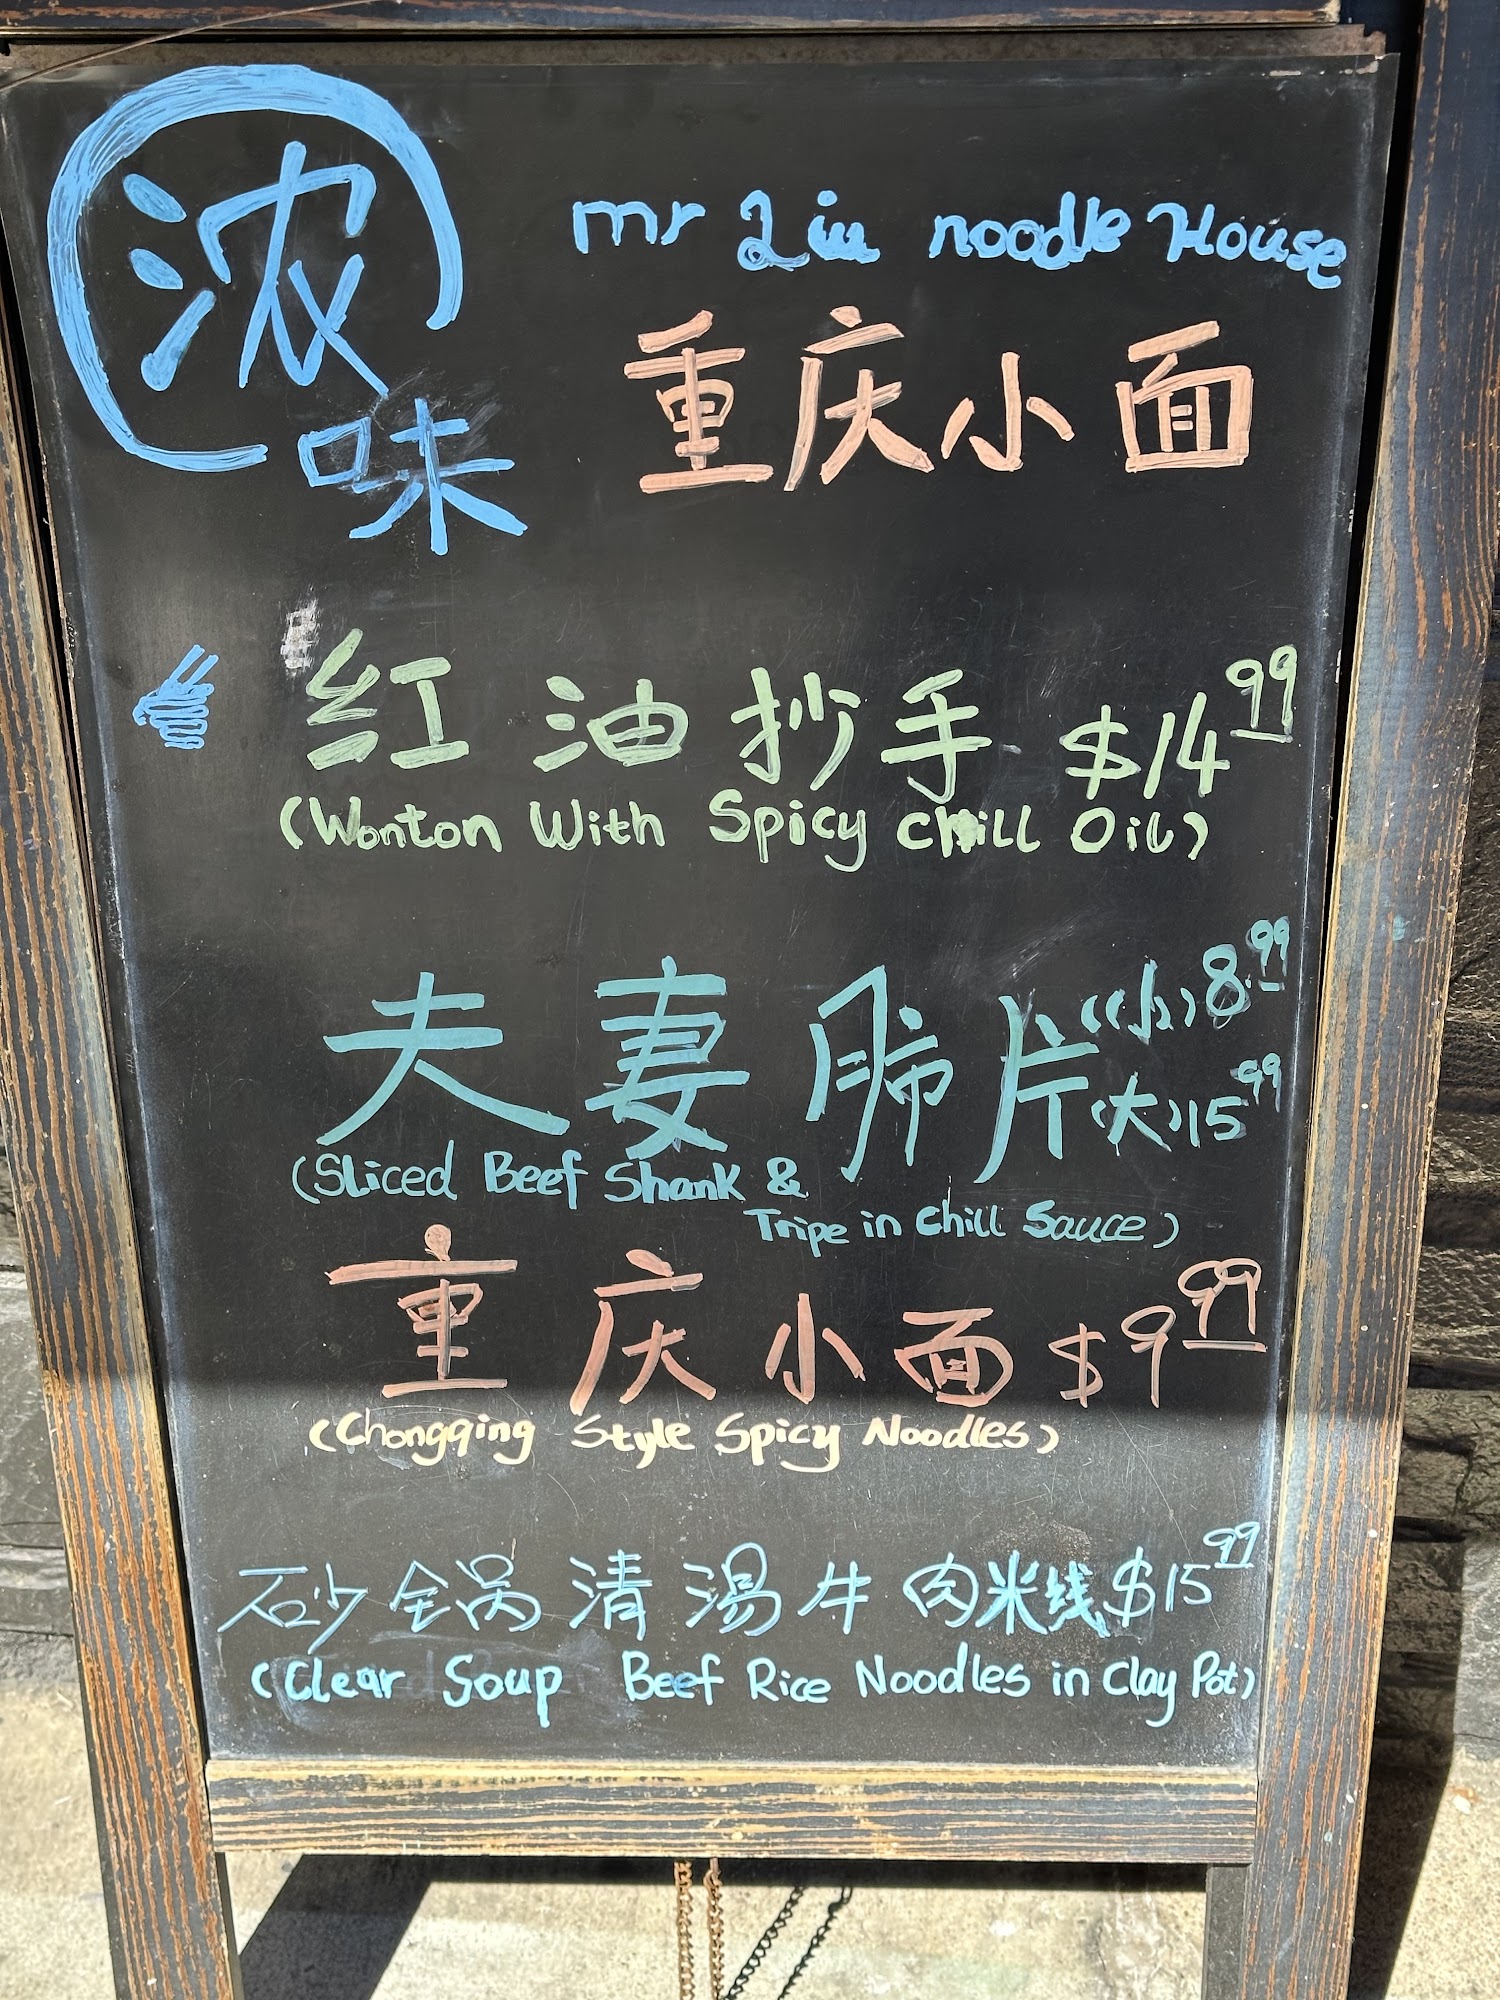 浓味
mr Liu noodle House
重庆小面
红油抄手 $14.99
(Wonton With Spicy Chill Oil)
夫妻肺片 (小) 8.99
(大) 15.99
(Sliced Beef Shank &
Tripe in Chill Sauce)
重庆小面 $9.99
(Chongqing Style Spicy Noodles)
砂锅清湯牛肉米线 $15.99
(Clear Soup Beef Rice Noodles in Clay Pot)